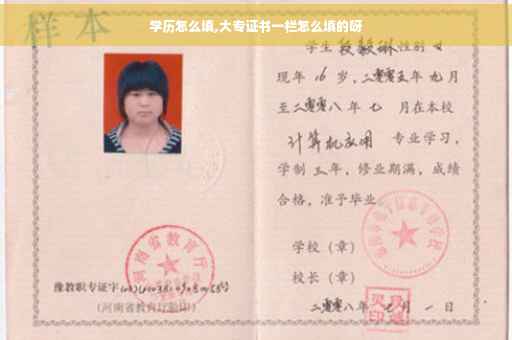 学历怎么填,大专证书一栏怎么填的呀
样本
学生 段毅琳 性别 女
现年 16 岁,二零零五年 九月
至二零零八年 七 月在本校
计算机应用 专业学习,
学制 三 年,修业期满,成绩
合格,准予毕业
学校(章)
校长(章)
二零零八年 七 月 一 日
河南省教育厅
豫教职专证字
(河南省教育厅验印)